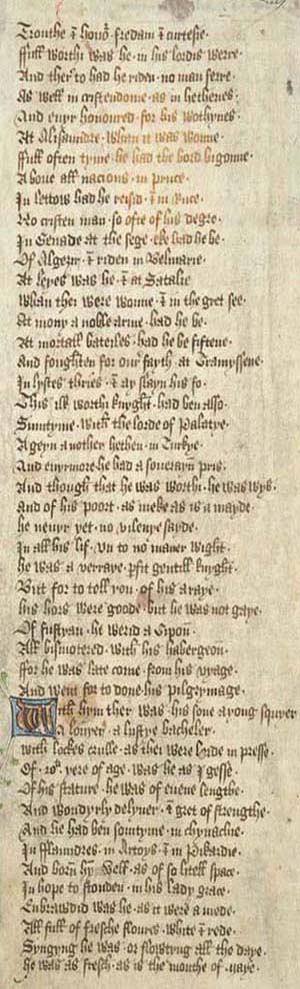 Trouthe & honor fredam & curtesie·
Ffull worthi was he· in his lordis werre·
And therto had he riden· no man ferre·
As well in cristendome· as in hethenes·
And euyr honoured· for his worthynes·
At Alisaundre· whan it was wonne·
Ffull often tyme· he had the bord bigonne·
Above all nacions· in pruce·
In lettow had he reisid· & in Ruce·
No cristen man· so ofte of his degre·
In Genade at the sege· eke had he be·
Of Algezir· & riden in Belmarie·
At leyes was he· & at Satalie
Whan they were wonne· & in the gret see·
At mony a noble arme· had he be·
At mortall bateiles· had he be fiftene·
And foughten for our fayth· at Tramyssene·
In lystes thries· & ay slayn his fo·
This ilk worthi knyght· had ben also·
Sumtyme· with the lorde of Palatye·
Ageyn another hethen· in Turkye·
And euyrmore he had a souerayn pris·
And though that he was worthi· he was wys·
And of his poort· as meke as is a mayde·
he neuyr yet· no vilenye sayde·
In all his lif· vn to no maner wight·
he was a verraye· pfit gentill knyght·
But for to tell you· of his araye·
his hors were goode· but he was not gaye·
Of fustyan· he werid a Gipon·
All bismotered· with his habergeon·
Ffor he was late come· from his vyage·
And went for to done· his pilgrymage·
With hym ther was· his sone a yong squyer
A louyer· a lustye bacheler·
with lockes crulle· as they were leyde in presse·
Of· xx· yere of age· was he as I gesse·
Of his stature· he was of euene lengthe·
And wondyrly delyuer· & gret of strengthe·
And he had ben sumtyme· in chyuachie·
In fflaundres· in Artoys· & in Pikardie·
And born hym well· as of so litell space·
In hope to stonden· in his lady grace·
Enbrawdid was he· as it were a mede·
All full of fresche floures· white & rede·
Syngyng he was· or flowtyng all the daye·
he was as fresch· as is the monthe of maye·